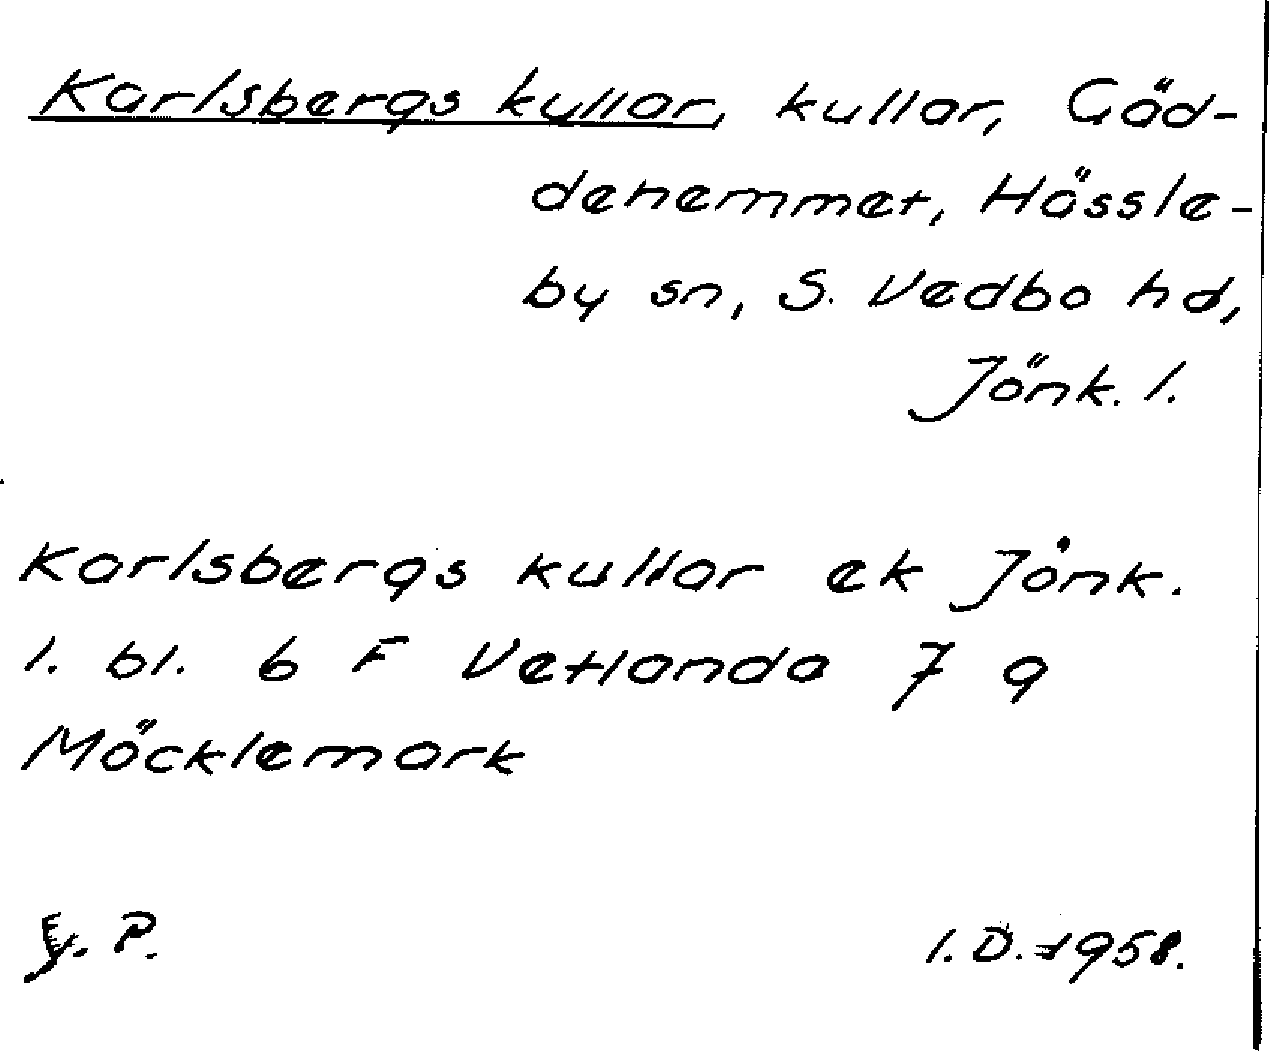 Karlsbergs kullar, kullar, Gäd-
denemmet, Hässle-
by sn, S. Vedbo hd,
Jönk. l.
Karlsbergs kullar ek Jönk.
l. bl. 6 F Vetlanda 7 a
Möcklemark
P.
I.D. 1958.